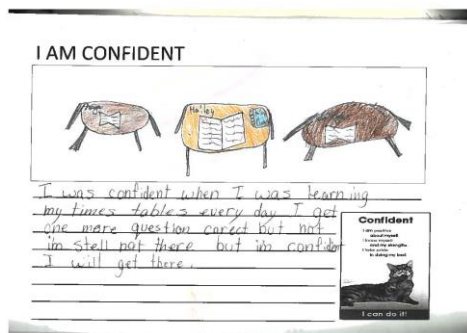 I AM CONFIDENT
Hailey
I was confident when I was learning
my times tables every day I get
one more question carect but not
im stell not there but im confident
I will get there.
Confident
I am positive
about myself
I know myself
and my strengths
I take pride
in doing my best
I can do it!